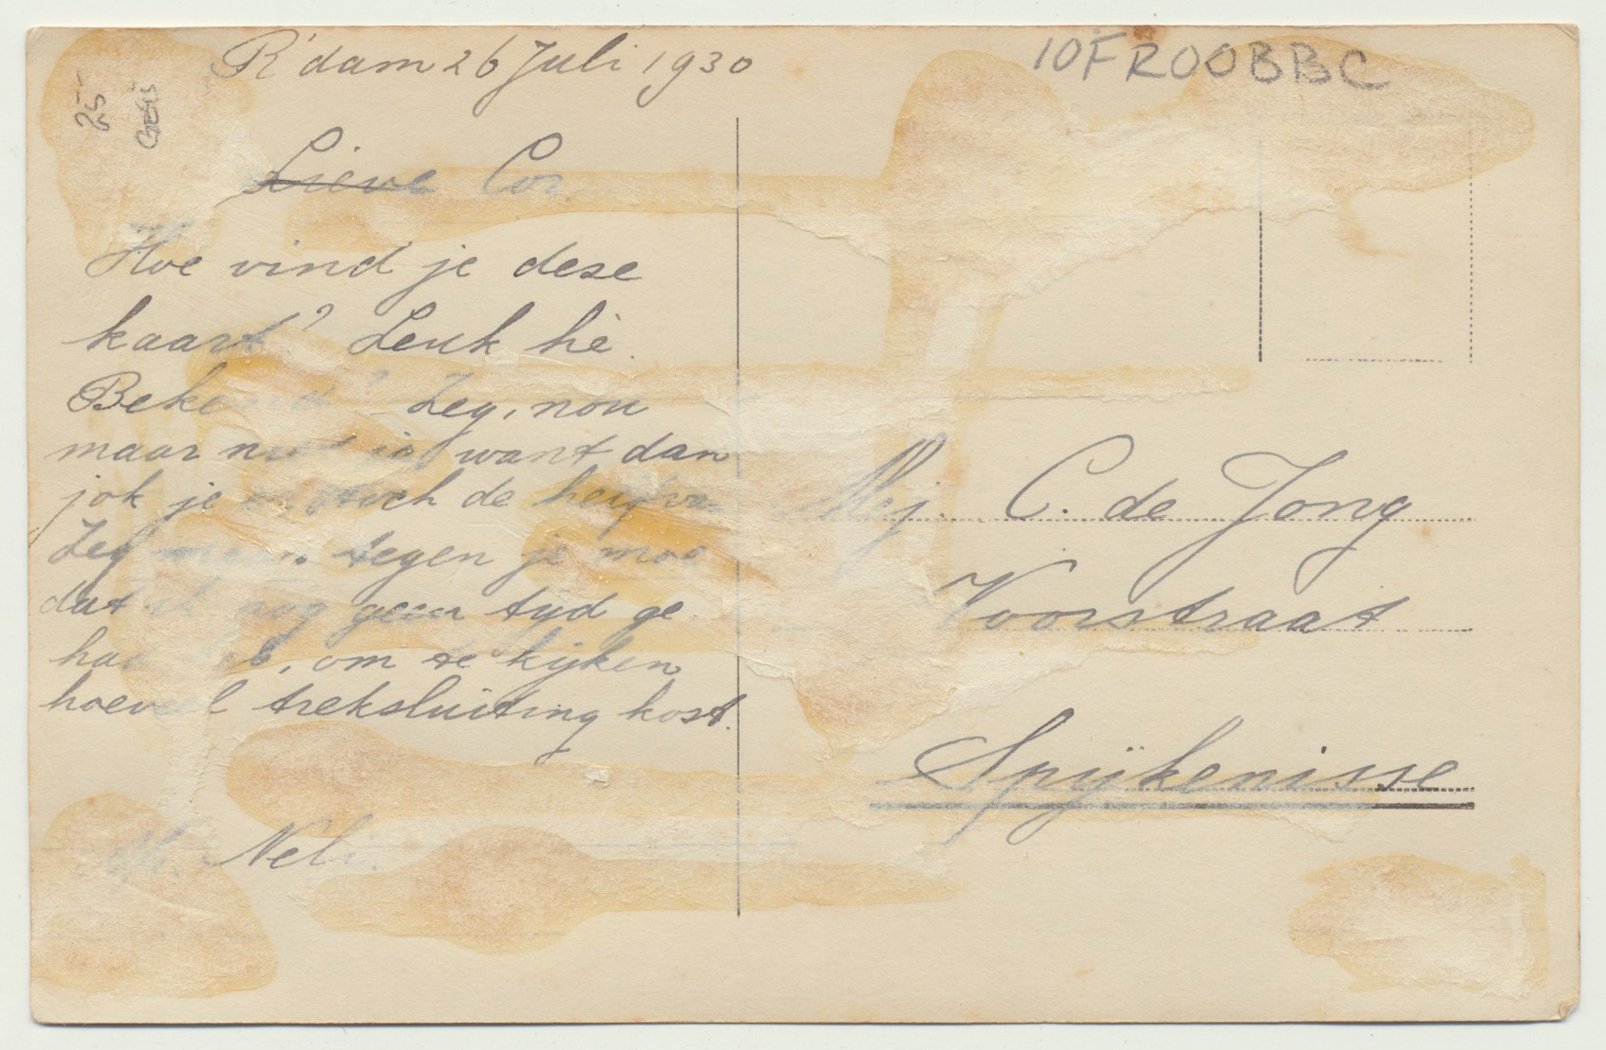 R'dam 26 Juli 1930
10FR00BBC
25
Lieve Cor.
Hoe vind je deze
kaart? Leuk hè.
Zeg, nou
maar want dan
jok je toch de
Zeg tegen je moe
dat ik nog geen tijd ge-
had heb, om te kijken
hoeveel treksluiting kost.
Nel
Mej. C. de Jong
Voorstraat
Spijkenisse